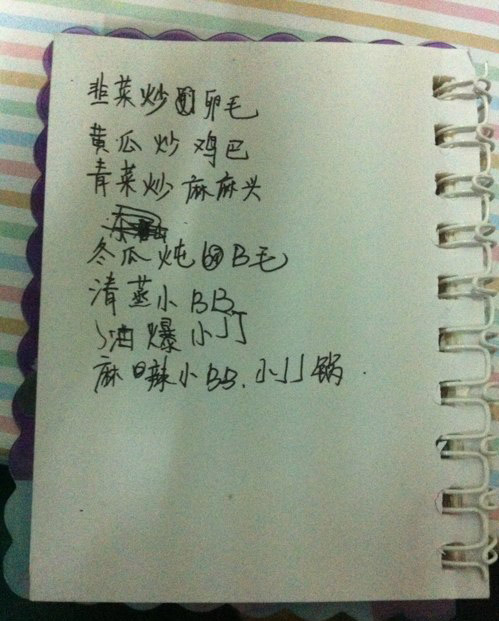 韭菜炒卵毛
黄瓜炒鸡巴
青菜炒麻麻头
冬瓜炖B毛
清蒸小BB
油爆小JJ
麻辣小BB.小JJ锅.